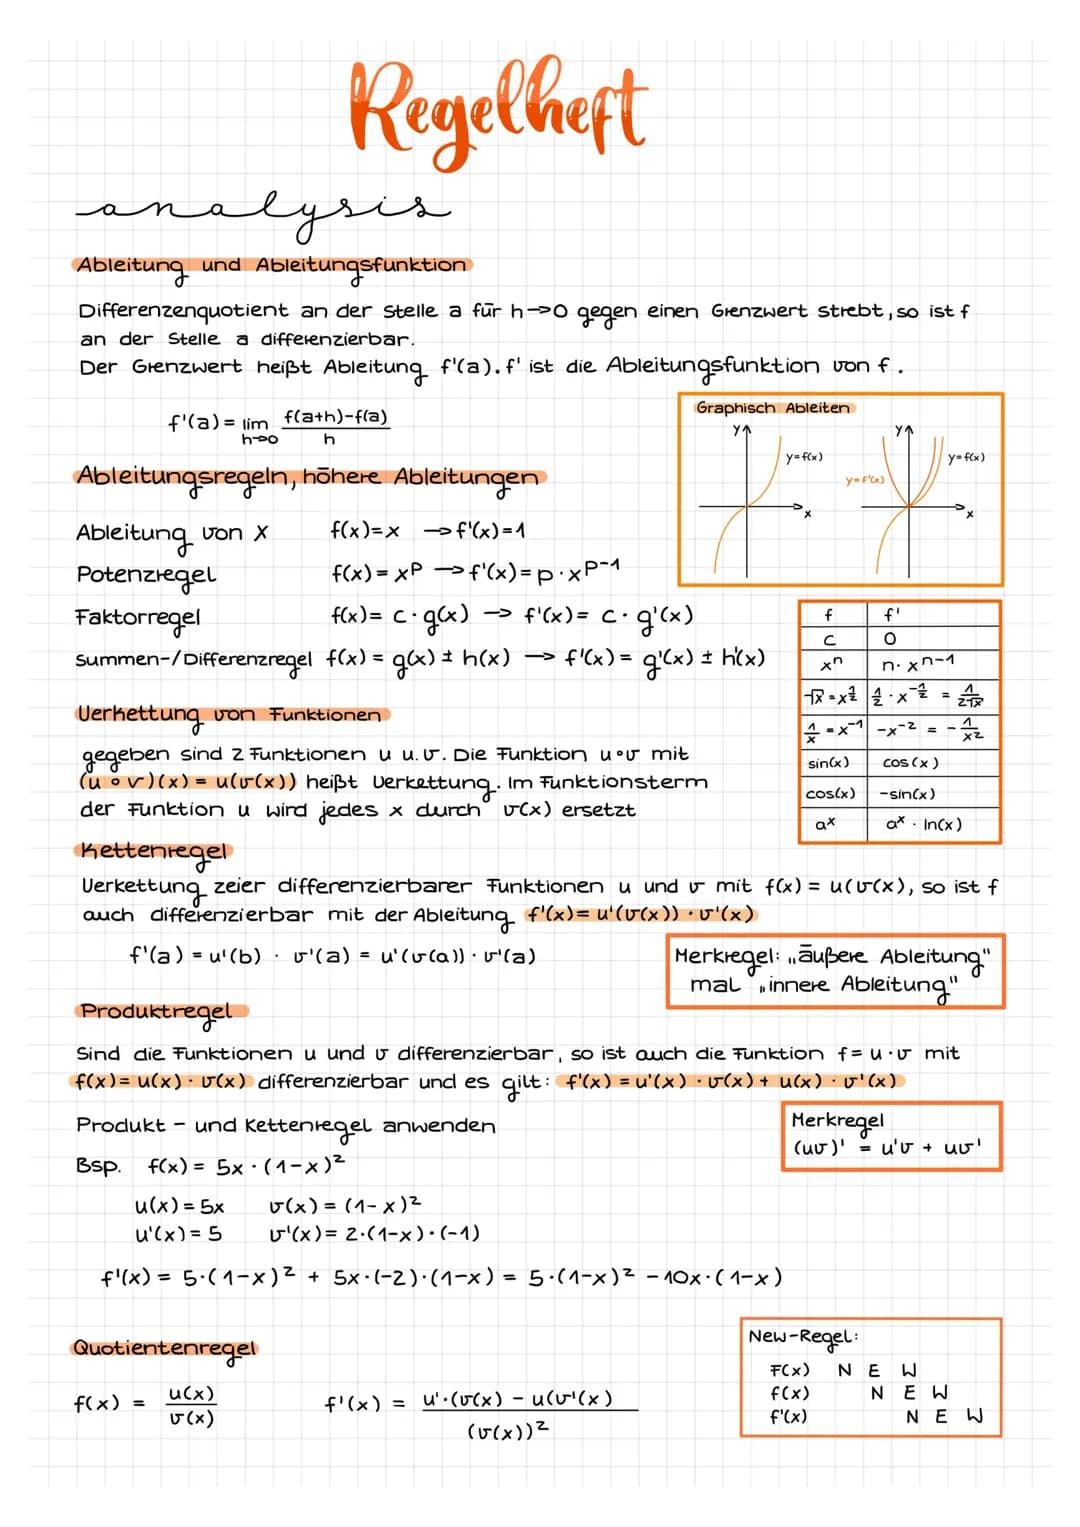 Regelheft
analysis
Ableitung und Ableitungsfunktion
Differenzenquotient an der Stelle a für h→0 gegen einen Grenzwert strebt, so ist f
an der Stelle a differenzierbar.
Der Grenzwert heißt Ableitung f'(a). f' ist die Ableitungsfunktion von f.
f'(a) = lim h→0 (f(a+h)-f(a))/h
Graphisch Ableiten
y
y=f(x)
x
y
y=f'(x)
y=f(x)
x
Ableitungsregeln, höhere Ableitungen
Ableitung von X f(x)=x → f'(x)=1
Potenzregel f(x)= x^p → f'(x)= p·x^(p-1)
Faktorregel f(x)= c·g(x) → f'(x)= c·g'(x)
Summen-/Differenzregel f(x) = g(x) ± h(x) → f'(x) = g'(x) ± h'(x)
f f'
c 0
xⁿ n·x^(n-1)
√x = x^(1/2) 1/2·x^(-1/2) = 1/(2√x)
1/x = x^(-1) -x^(-2) = -1/x²
sin(x) cos(x)
cos(x) -sin(x)
a^x a^x · ln(x)
Verkettung von Funktionen
gegeben sind 2 Funktionen u u. v. Die Funktion u∘v mit
(u∘v)(x) = u(v(x)) heißt Verkettung. Im Funktionsterm
der Funktion u wird jedes x durch v(x) ersetzt
Kettenregel
Verkettung zeier differenzierbarer Funktionen u und v mit f(x) = u(v(x), so ist f
auch differenzierbar mit der Ableitung f'(x)= u'(v(x)) · v'(x)
f'(a) = u'(b) · v'(a) = u'(v(a)) · v'(a)
Merkregel: „äußere Ableitung"
mal „innere Ableitung"
Produktregel
Sind die Funktionen u und v differenzierbar, so ist auch die Funktion f= u·v mit
f(x)= u(x) · v(x) differenzierbar und es gilt: f'(x) = u'(x) · v(x) + u(x) · v'(x)
Produkt - und Kettenregel anwenden
Merkregel
(uv)' = u'v + uv'
Bsp. f(x) = 5x · (1-x)²
u(x) = 5x v(x) = (1-x)²
u'(x) = 5 v'(x) = 2·(1-x)·(-1)
f'(x) = 5·(1-x)² + 5x·(-2)·(1-x) = 5·(1-x)² - 10x·(1-x)
Quotientenregel
f(x) = u(x)/v(x) f'(x) = (u'·(v(x) - u(v'(x))/(v(x))²
New-Regel:
F(x) N E W
f(x) N E W
f'(x) N E W